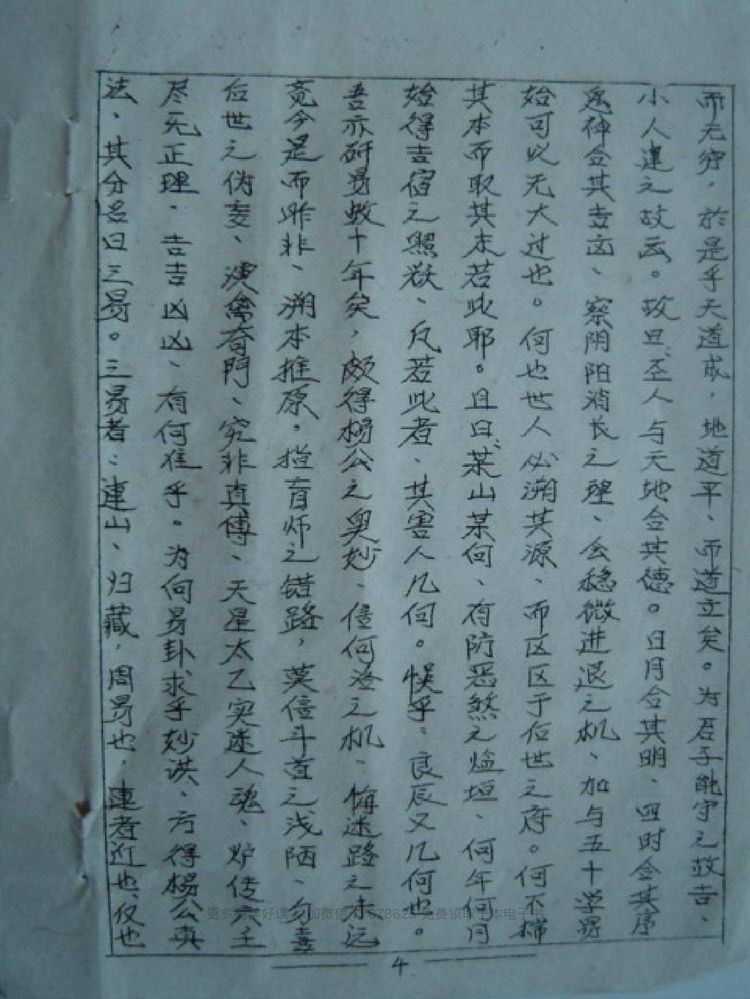 而无穷，於是乎天道成，地道平、而道立矣。为君子能守之故吉、
小人违之故凶。故曰、圣人与天地合其德。日月合其明、四时合其序
鬼神合其吉凶、察阴阳消长之理、会稳微进退之机、加与五十学易
始可以无大过也。何也世人必溯其源、而区区于后世之府。何不揣
其本而取其末若此耶。且曰、某山某向、有防恶煞之 垣、何年何月
始得吉宿之照欤、凡若此者、其害人几何。悮乎、良辰又几何也。
吾亦研易数十年矣，颇得杨公之奥妙、信河洛之机、悔迷路之未远
竟今是而昨非、溯本推原。指盲师之错路，莫信斗首之浅陋、勿喜
后世之伪妄、演禽奇門、究非真傳、天星太乙实迷人魂、炉传六壬
尽无正理、吉吉凶凶、有何准乎。为向易卦求乎妙诀、方得杨公真
法、其分名曰三易。三易者：連山、归藏，周易也，連者近也、仅也
4